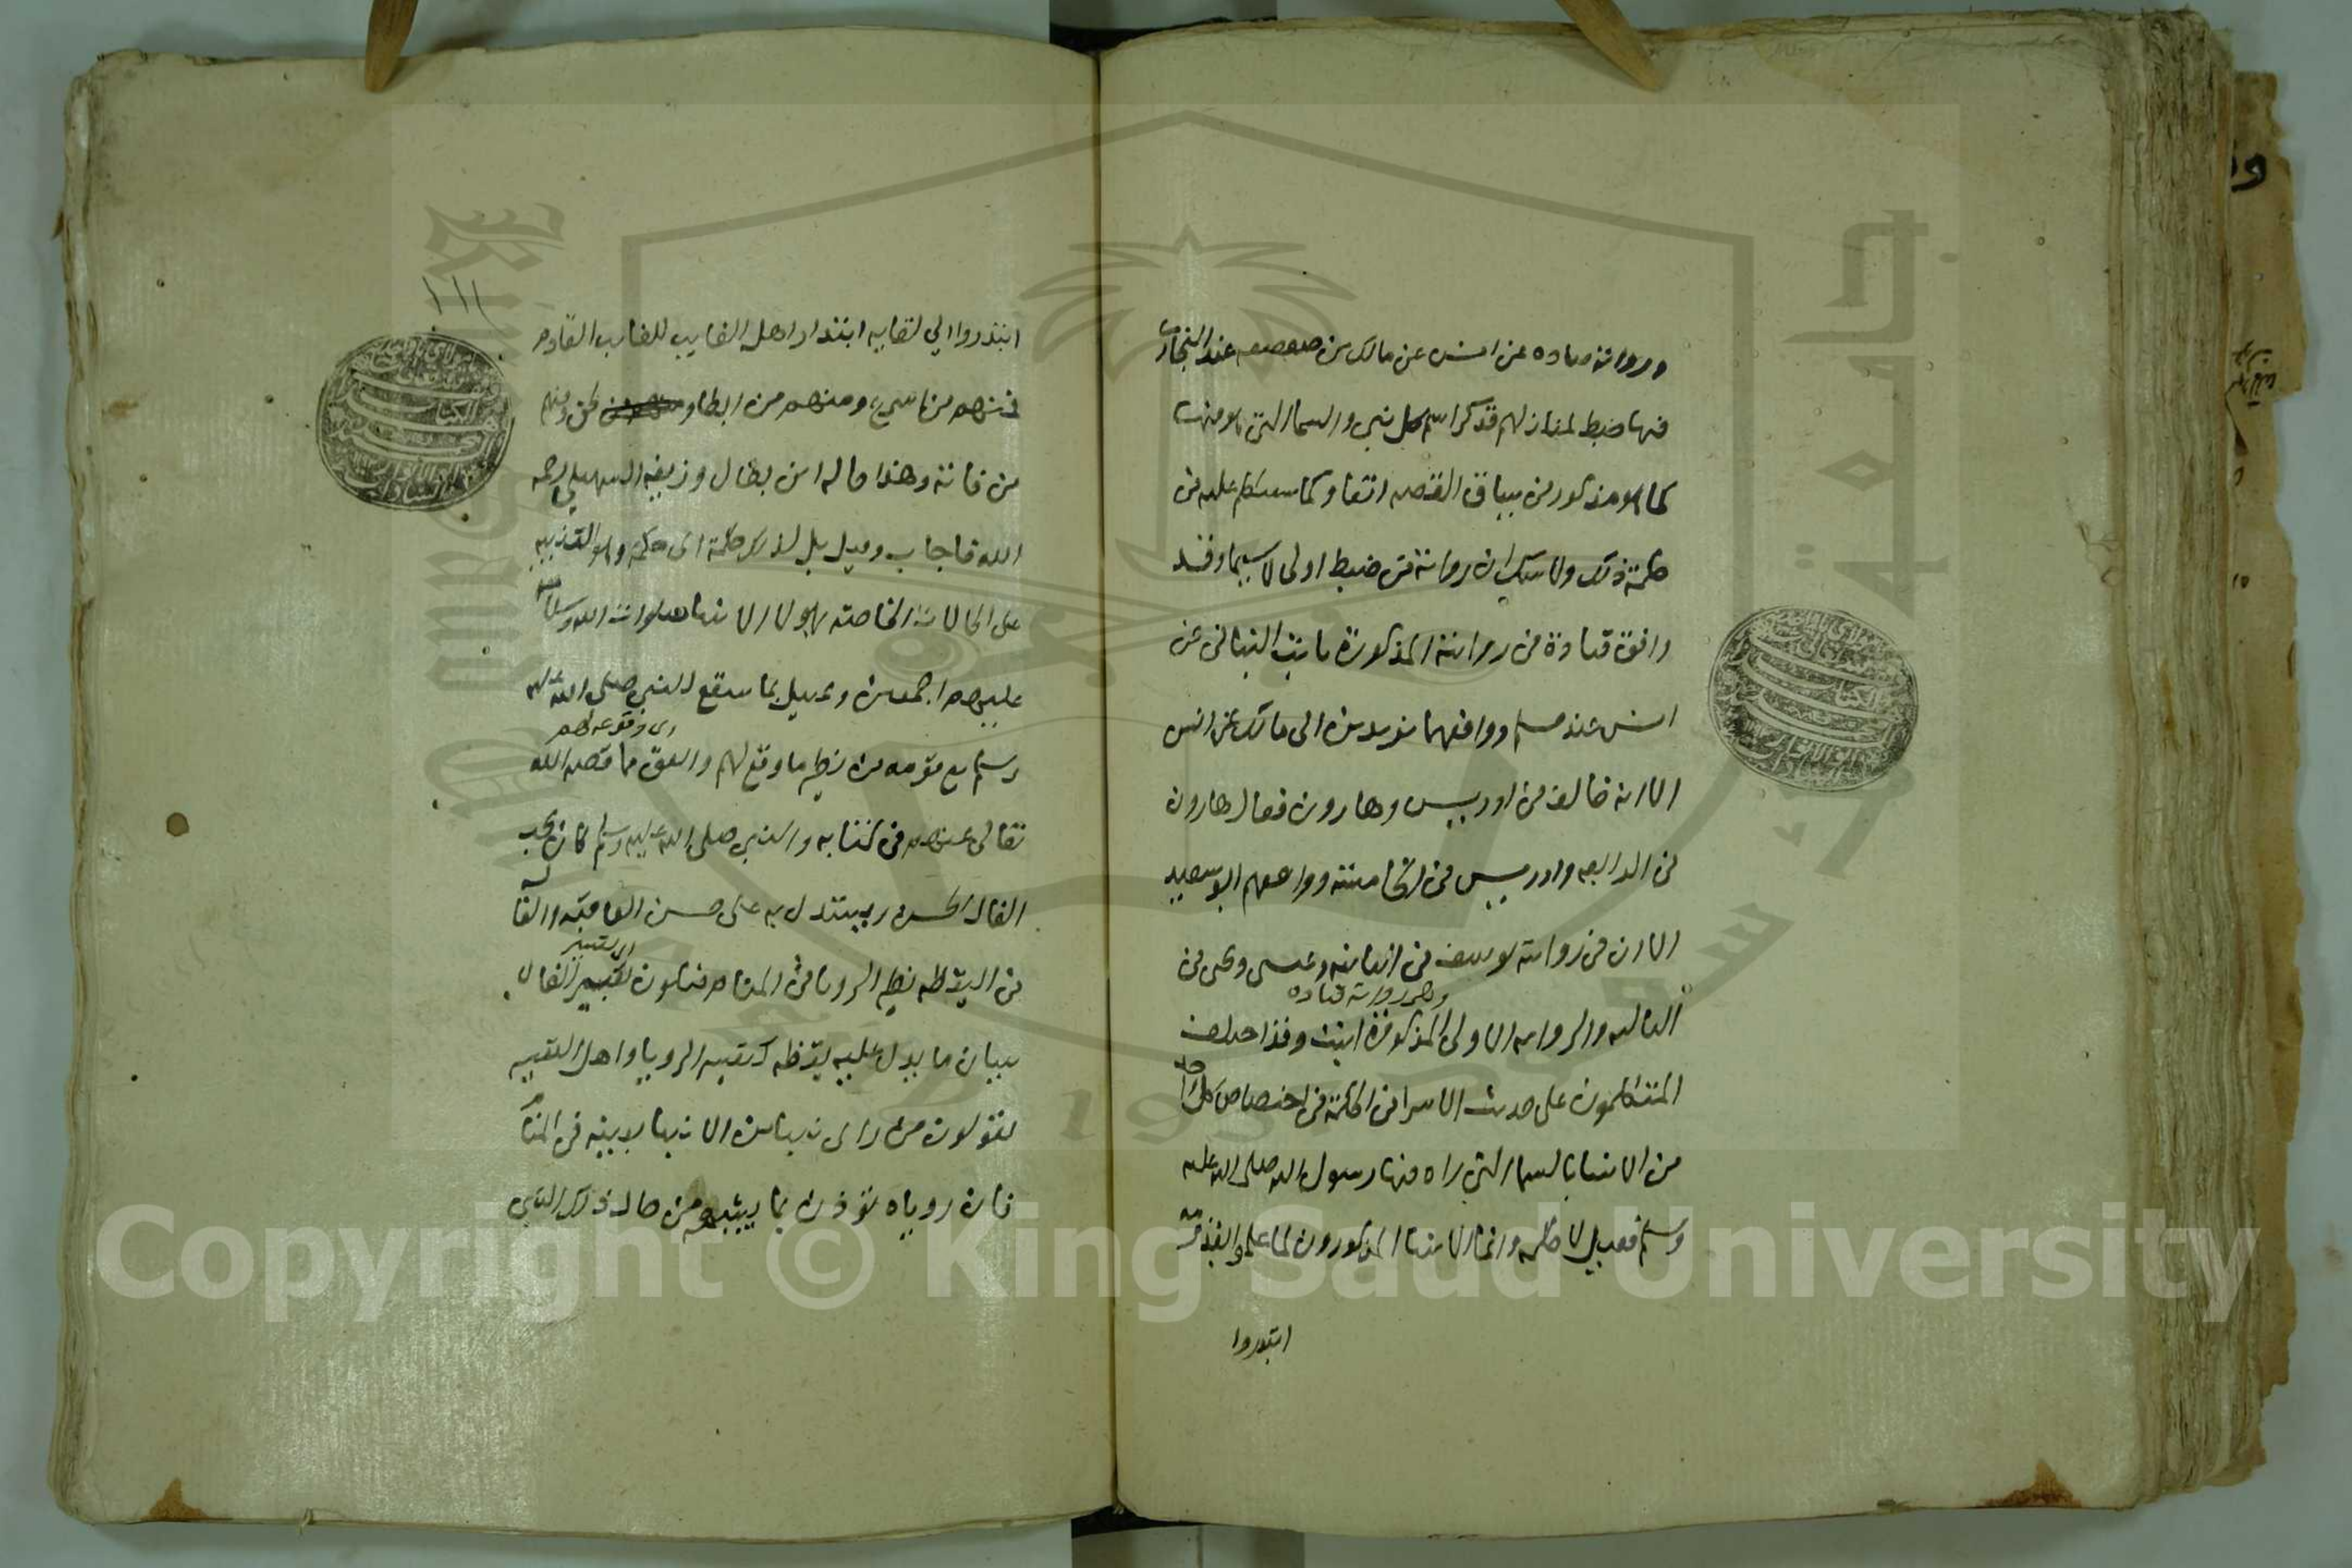 ورواية قتاده عن انس عن مالك بن صعصعه عند البخاري
فيها ضبط لمنازلهم فذكر اسم كل نبي والسما التي هو فيها
كما هو مذكور في سياق القصه انتفا وكما سنتكلم عليه في
حكمة ذلك ولا شك ان رواية من ضبط اولى لا سيما وقد
وافق قتادة في روايته المذكورة ثابت البناني عن
انس عند مسلم ووافقهما يزيد بن ابى مالك عن انس
الا انه خالف في ادريس وهارون فقال هارون
في الرابعه وادريس في الخامسة ووافقهم ابو سعيد
الا ان في روايته يوسف في الثانيه وعيسى ويحيى في
وهى رواية قتاده
الثالثه والروايه الاولى المذكورة اثبت وقد اختلف
المتكلمون على حديث الاسرا في الحكمة في اختصاص كل واحد
من الانبيا بالسما التي راه فيها رسول الله صلى الله عليه
وسلم فقيل لا حكمه وانما الانبيا المذكورون لما علموا بقدومه
ابتدروا
١١١
ابتدروا الي لقايه ابتدار اهل الغايب للغايب القادم
فمنهم من اسرع ومنهم من ابطا ولحق ومنهم
من فاته وهذا قاله ابن بطال وزيفه السهيلي رحمه
الله فاجاب وقيل بل لذلك حكمة اى حكمة وهو التنبيه
على الحالات الخاصة بهولا الانبيا صلوات الله وسلامه
عليهم اجمعين وتمثيل بما سيقع للنبي صلى الله عليه
اى وقوعه لهم
وسلم مع قومه من نظير ما وقع لهم واتفق مما قصه الله
تعالى عنهم في كتابه والنبي صلى الله عليه وسلم كان يحب
الفال الحسن ويستدل به على حسن العاقبه والفال
اى تعبير
في اليقظه نظير الرويا في المنام فيكون تعبير الفال
ببيان ما يدل عليه يقظه كتعبير الرويا واهل التعبير
يقولون من راى نبيا من الانبيا بعينه في المنام
فان روياه تؤذن بما يشبه من حال ذلك النبي
Copyright © King Saud University